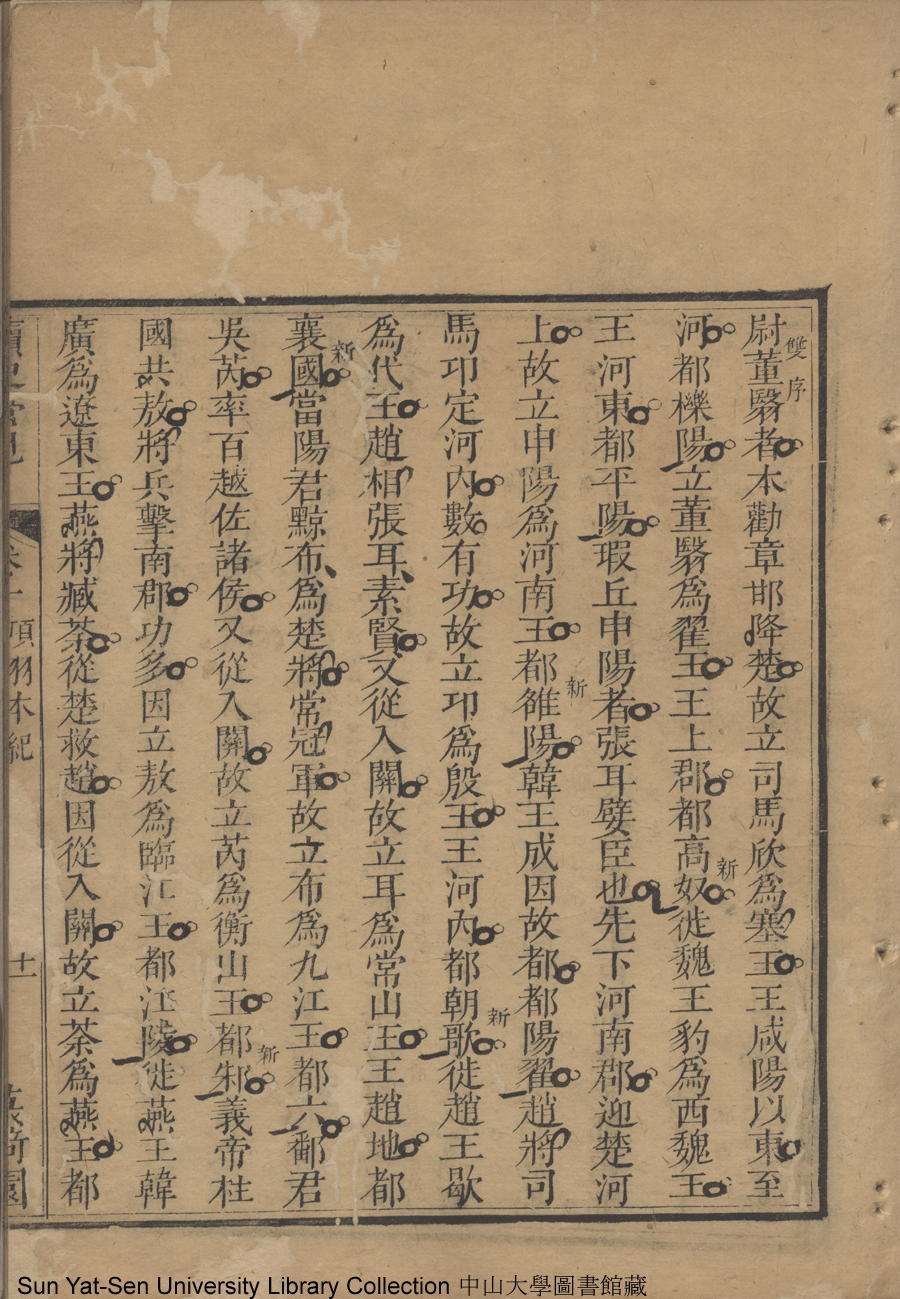 尉董翳者本勸章邯降楚故立司馬欣爲塞王王咸陽以東至
雙序
河都櫟陽立董翳爲翟王王上郡都高奴徙魏王豹爲西魏王
新
王河東都平陽瑕丘申陽者張耳嬖臣也先下河南郡迎楚河
上故立申陽爲河南王都雒陽韓王成因故都都陽翟趙將司
新
馬卬定河內數有功故立卬爲殷王王河內都朝歌徙趙王歇
新
爲代王趙相張耳素賢又從入關故立耳爲常山王王趙地都
襄國當陽君黥布爲楚將常冠軍故立布爲九江王都六鄱君
新
吳芮率百越佐諸侯又從入關故立芮爲衡山王都邾義帝柱
新
國共敖將兵擊南郡功多因立敖爲臨江王都江陵徙燕王韓
廣爲遼東王燕將臧荼從楚救趙因從入關故立荼爲燕王都
項羽本紀
十
Sun Yat-Sen University Library Collection 中山大學圖書館藏